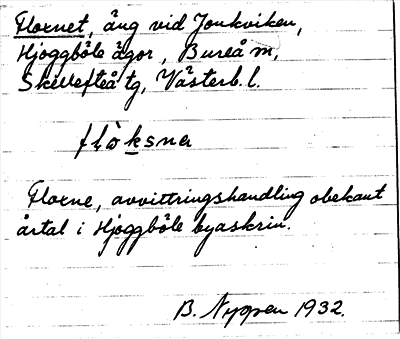 Floxnet, äng vid Jonkviken,
Hjoggböle ägor, Bureå m,
Skellefteå tg, Västerb. l.
flòksna
Floxne, avvittringshandling obekant
årtal i Hjoggböle byaskrin.
B. Nyppen 1932.